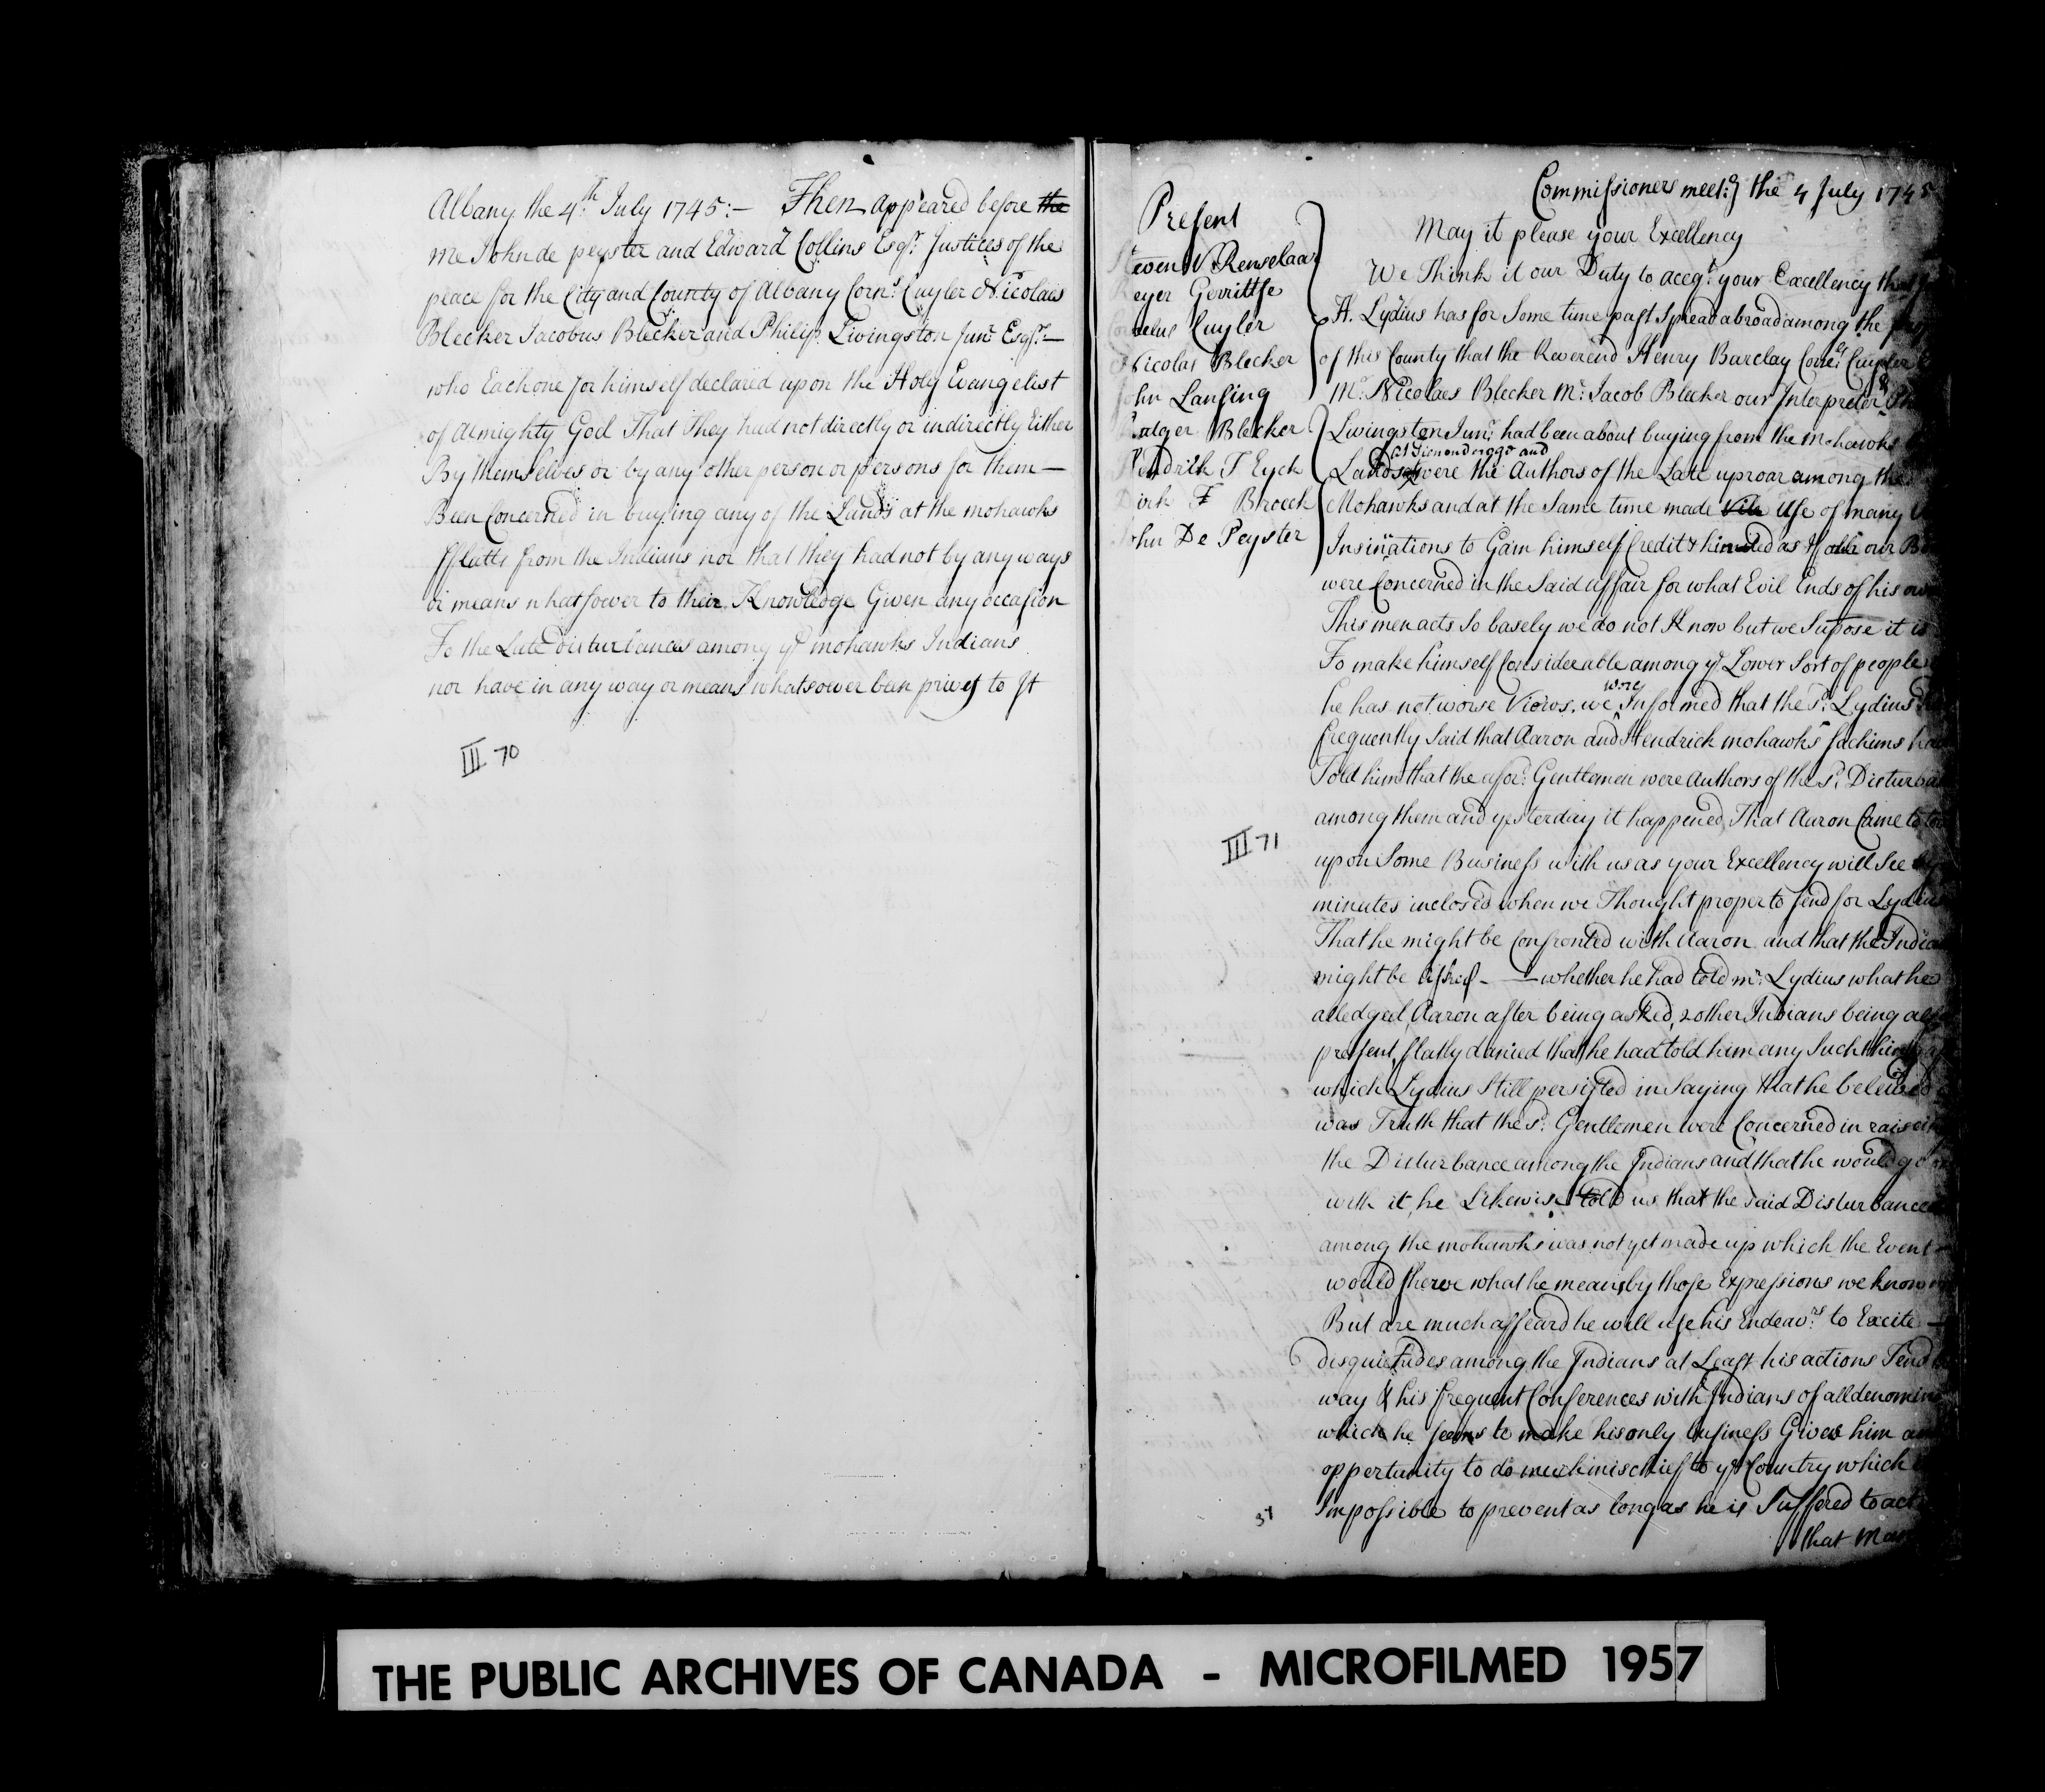 Albany the 4th July 1745:— Then appeared before the
me John de peyster and Edward Collins Esqr. Justices of the
peace for the City and County of Albany Corns. Cuyler Nicolaes
Bleeker Jacobus Bleeker and Philip Livingston Junr. Esqrs.—
who Each one for himself declared upon the Holy Evangelist
of Almighty God That They had not directly or indirectly Either
By themselves or by any other person or persons for them—
Been Concerned in buying any of the Lands at the mohawks
fflatts from the Indians nor that they had not by any ways
or means whatsoever to their Knowledge Given any occasion
To the Late disturbances among ye mohawks Indians
nor have in any way or means whatsoever been privy to It
III 70
Commissioners meetg. the 4 July 1745
Present
even V. Renselaar
eyer Gerrittse
nelus Cuyler
Nicolas Bleeker
John Lansing
Rutger Bleeker
Hendrick T Eyck
Dirk T Broeck
John De Peyster
May it please your Excellency
We Think it our Duty to accqt. your Excellency that
H. Lydius has for Some time past Spread abroad among the
of this County that the Reverend Henry Barclay Corne. Cuyler
Mr. Nicolaes Bleeker Mr. Jacob Bleeker our Interpreter &
Livingston Junr. had been about buying from the mohawks
at Tionondrogge and
Lands were the Authors of the Late uproar among the
Mohawks and at the Same time made Vile Use of many
Insinuations to Gain himself Credit & hinted as if our
were Concerned in the Said affair for what Evil Ends of his own
This men acts So basely we do not Know but we Supose it is
To make himself Considerable among ye Lower Sort of people
were
he has not worse Views. we Informed that the sd. Lydius
frequently Said that Aaron and Hendrick mohawks Sachims
Told him that the afor: Gentlemen were Authors of the sd. Disturban
among them and yesterday it happened That Aaron Came to
upon Some Business with us as your Excellency will See by
minutes inclosed when we Thought proper to send for Lydius
That he might be Confronted with Aaron and that the Indian
might be asked — — whether he had told mr. Lydius what he
alledged, Aaron after being asked, 2 other Indians being also
present, flatly denied that he had told him any Such thing
which Lydius Still persisted in Saying that he beleived
was Truth that the sd. Gentlemen were Concerned in raiseing
the Disturbance among the Indians and that he would go on
with it, he Likewise told us that the said Disturbance
among the mohawks was not yet made up which the Event
would sherve what he means by those Expressions we know
But are much affeard he will use his Endeavrs. to Excite —
disquietudes among the Indians at Least his actions Tend
way & his frequent Conferences with Indians of all denomin
which he seems to make his only business Gives him an
opportunity to do much mischief to ye Country which
Impossible to prevent as long as he is Suffered to act
that Man
III 71
37
THE PUBLIC ARCHIVES OF CANADA - MICROFILMED 1957